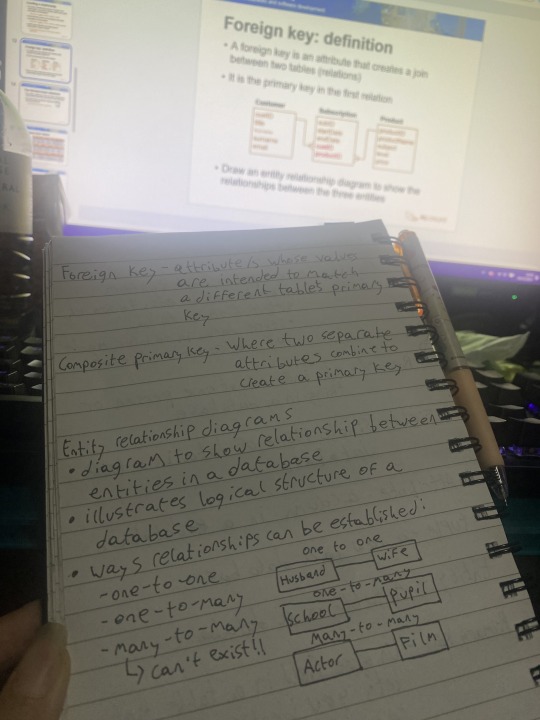 and software development
Foreign key: definition
• A foreign key is an attribute that creates a join
between two tables (relations)
• It is the primary key in the first relation
Customer
Subscription
Product
• Draw an entity relationship diagram to show the
relationships between the three entities
Foreign Key - attribute/s whose values
are intended to match
a different tables primary
key
Composite primary key - where two separate
attributes combine to
create a primary key
Entity relationship diagrams
• diagram to show relationship between
entities in a database
• illustrates logical structure of a
database
• ways relationships can be established:
- one-to-one
- one-to-many
- many-to-many
↳ can't exist!!
one to one
Husband
wife
one-to-many
school
pupil
many-to-many
Actor
Film